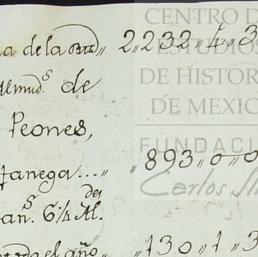 a de la 2,,2232,,4,,3
Almud.s de
Peones,
fanega... ,,893,,0,,0
an.s 6 1/4 Al.des
el año ,,130,,1,,3
CENTRO DE
ESTUDIOS
DE HISTOR
DE MEXIC
FUNDACI
Carlos Sl